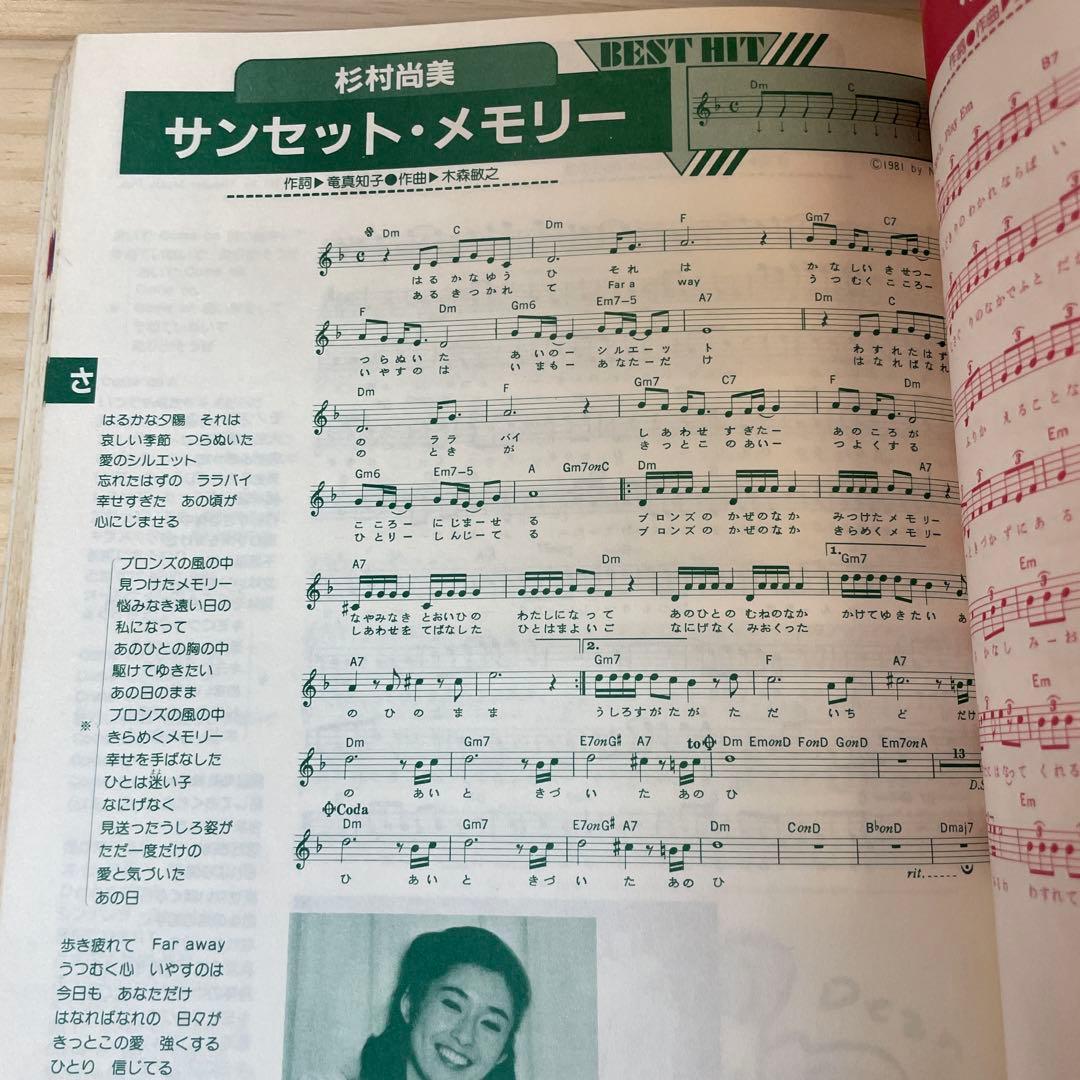 BEST HIT
杉村尚美
サンセット・メモリー
作詞▶竜真知子●作曲▶木森敏之
Dm C
©1981 by N
Dm C Dm F Gm7 C7
はるかなゆう ひ それ は かなしいきせつー
あるきつかれ て Far a way うつむくこころー
F Dm Gm6 Em7-5 A7 Dm C
つらぬいた あいのー シルエーッ ト わすれたはず
いやすのは いまもー あなたーだ け はなればなれ
Dm F Gm7 C7 F Dm
の ララ バイ しあわせすぎたー あのころが
の とき が きっとこのあいー つよくする
Gm6 Em7-5 A Gm7onC Dm A7
こころー にじまーせ る ブロンズの かぜのなか みつけたメモリー
ひとりー しんじーて る ブロンズの かぜのなか きらめくメモリー
A7 Dm 1. Gm7
なやみなき とおいひの わたしになって あのひとの むねのなか かけてゆきたい あ
しあわせを てばなした ひとはまよいご なにげなく みおくった
A7 2. Gm7 F A7
のひのまま うしろすがたがた だ いち ど だけ
Dm Gm7 E7onG# A7 to Dm EmonD FonD GonD Em7onA 13
の あいと きづい たあのひ D.S
Coda
Dm Gm7 E7onG# A7 Dm ConD BbonD Dmaj7
ひ あいと きづい たあのひ rit.
さ
はるかな夕陽 それは
哀しい季節 つらぬいた
愛のシルエット
忘れたはずの ララバイ
幸せすぎた あの頃が
心にじませる
ブロンズの風の中
見つけたメモリー
悩みなき遠い日の
私になって
あのひとの胸の中
駆けてゆきたい
あの日のまま
ブロンズの風の中
※
きらめくメモリー
幸せを手ばなした
ひとは迷い子
なにげなく
見送ったうしろ姿が
ただ一度だけの
愛と気づいた
あの日
歩き疲れて Far away
うつむく心 いやすのは
今日も あなただけ
はなればなれの 日々が
きっとこの愛 強くする
ひとり 信じてる
作詞●作曲▶
B7
Em
のわかれならば い
りのなかでふと だ
えることな
Em
きづかずにある
かなし みーお
Em
てはなって くれる
Em
わすれて